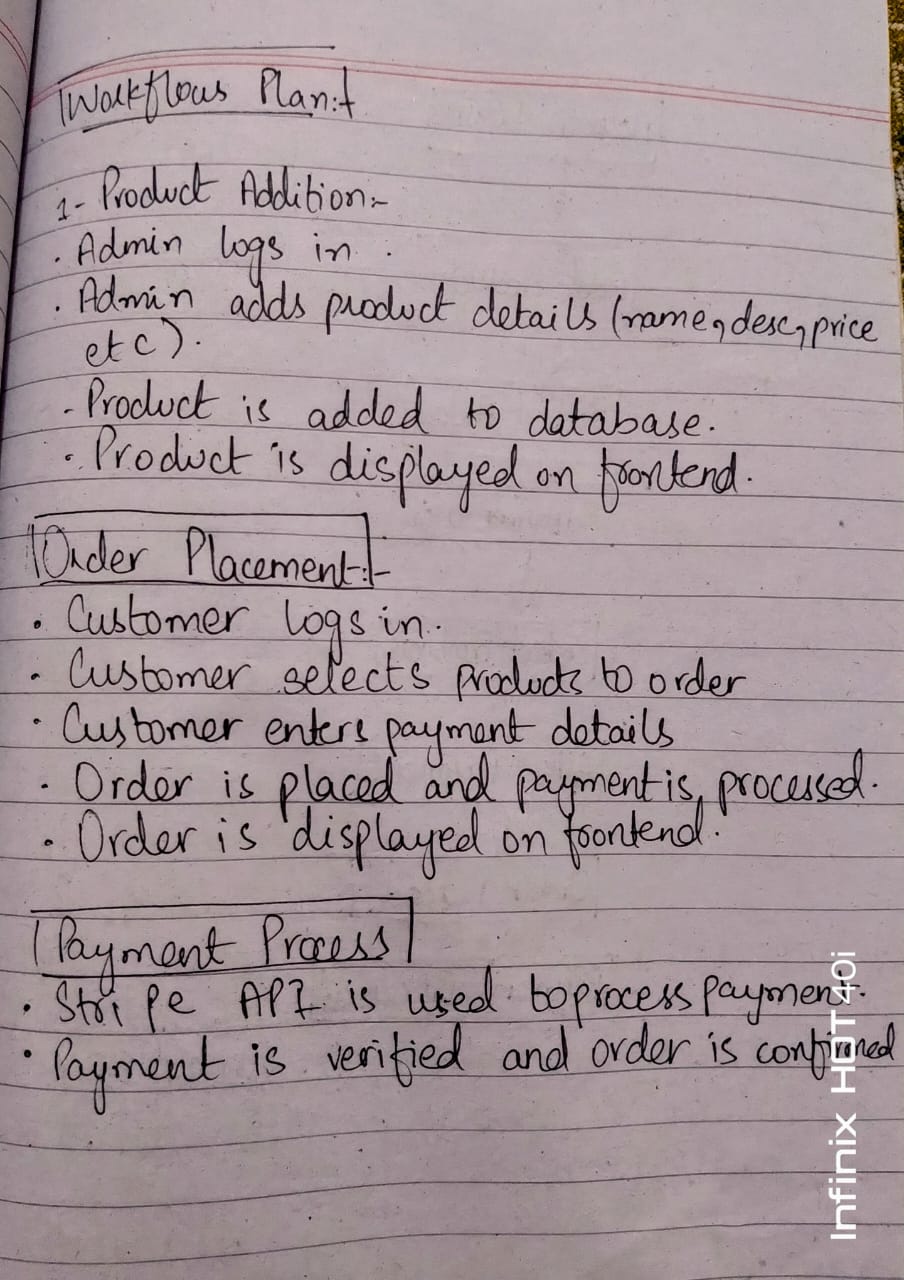 Workflows Plan:-
1- Product Addition:-
. Admin logs in .
. Admin adds product details (name, desc, price
etc).
- Product is added to database.
. Product is displayed on frontend.
Order Placement:-
. Customer logs in.
. Customer selects products to order
. Customer enters payment details
. Order is placed and payment is processed.
. Order is displayed on frontend.
Payment Process
. Stripe API is used to process payment.
. Payment is verified and order is confirmed
Infinix HOT 40i